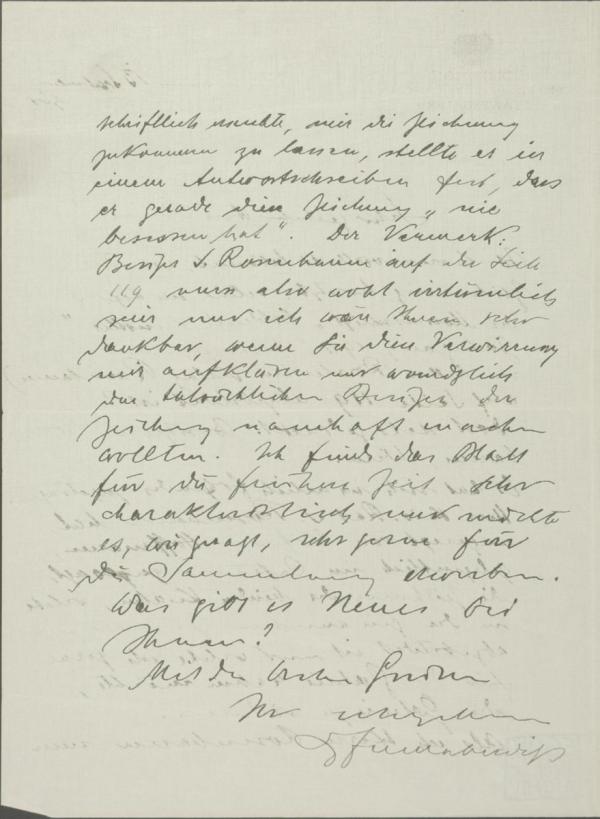 schriftlich ersuchte, mir die Zeichnung
zukommen zu lassen, stellte es in
einem Antwortschreiben fest, dass
er gerade diese Zeichnung „nie
besessen hat“. Der Vermerk:
Besitzer S. Rosenbaum auf der Seite
119 muss also wohl irrtümlich
sein und ich wäre Ihnen sehr
dankbar, wenn Sie diese Verwirrung
mir aufklären und womöglich
den tatsächlichen Besitzer der
Zeichnung namhaft machen
wollten. Ich finde das Blatt
für die frühere Zeit sehr
charakteristisch und möchte
es, wie gesagt, sehr gerne für
die Sammlung erwerben.
Was gibt es Neues bei
Ihnen?
Mit den besten Grüßen
Ihr ergebener